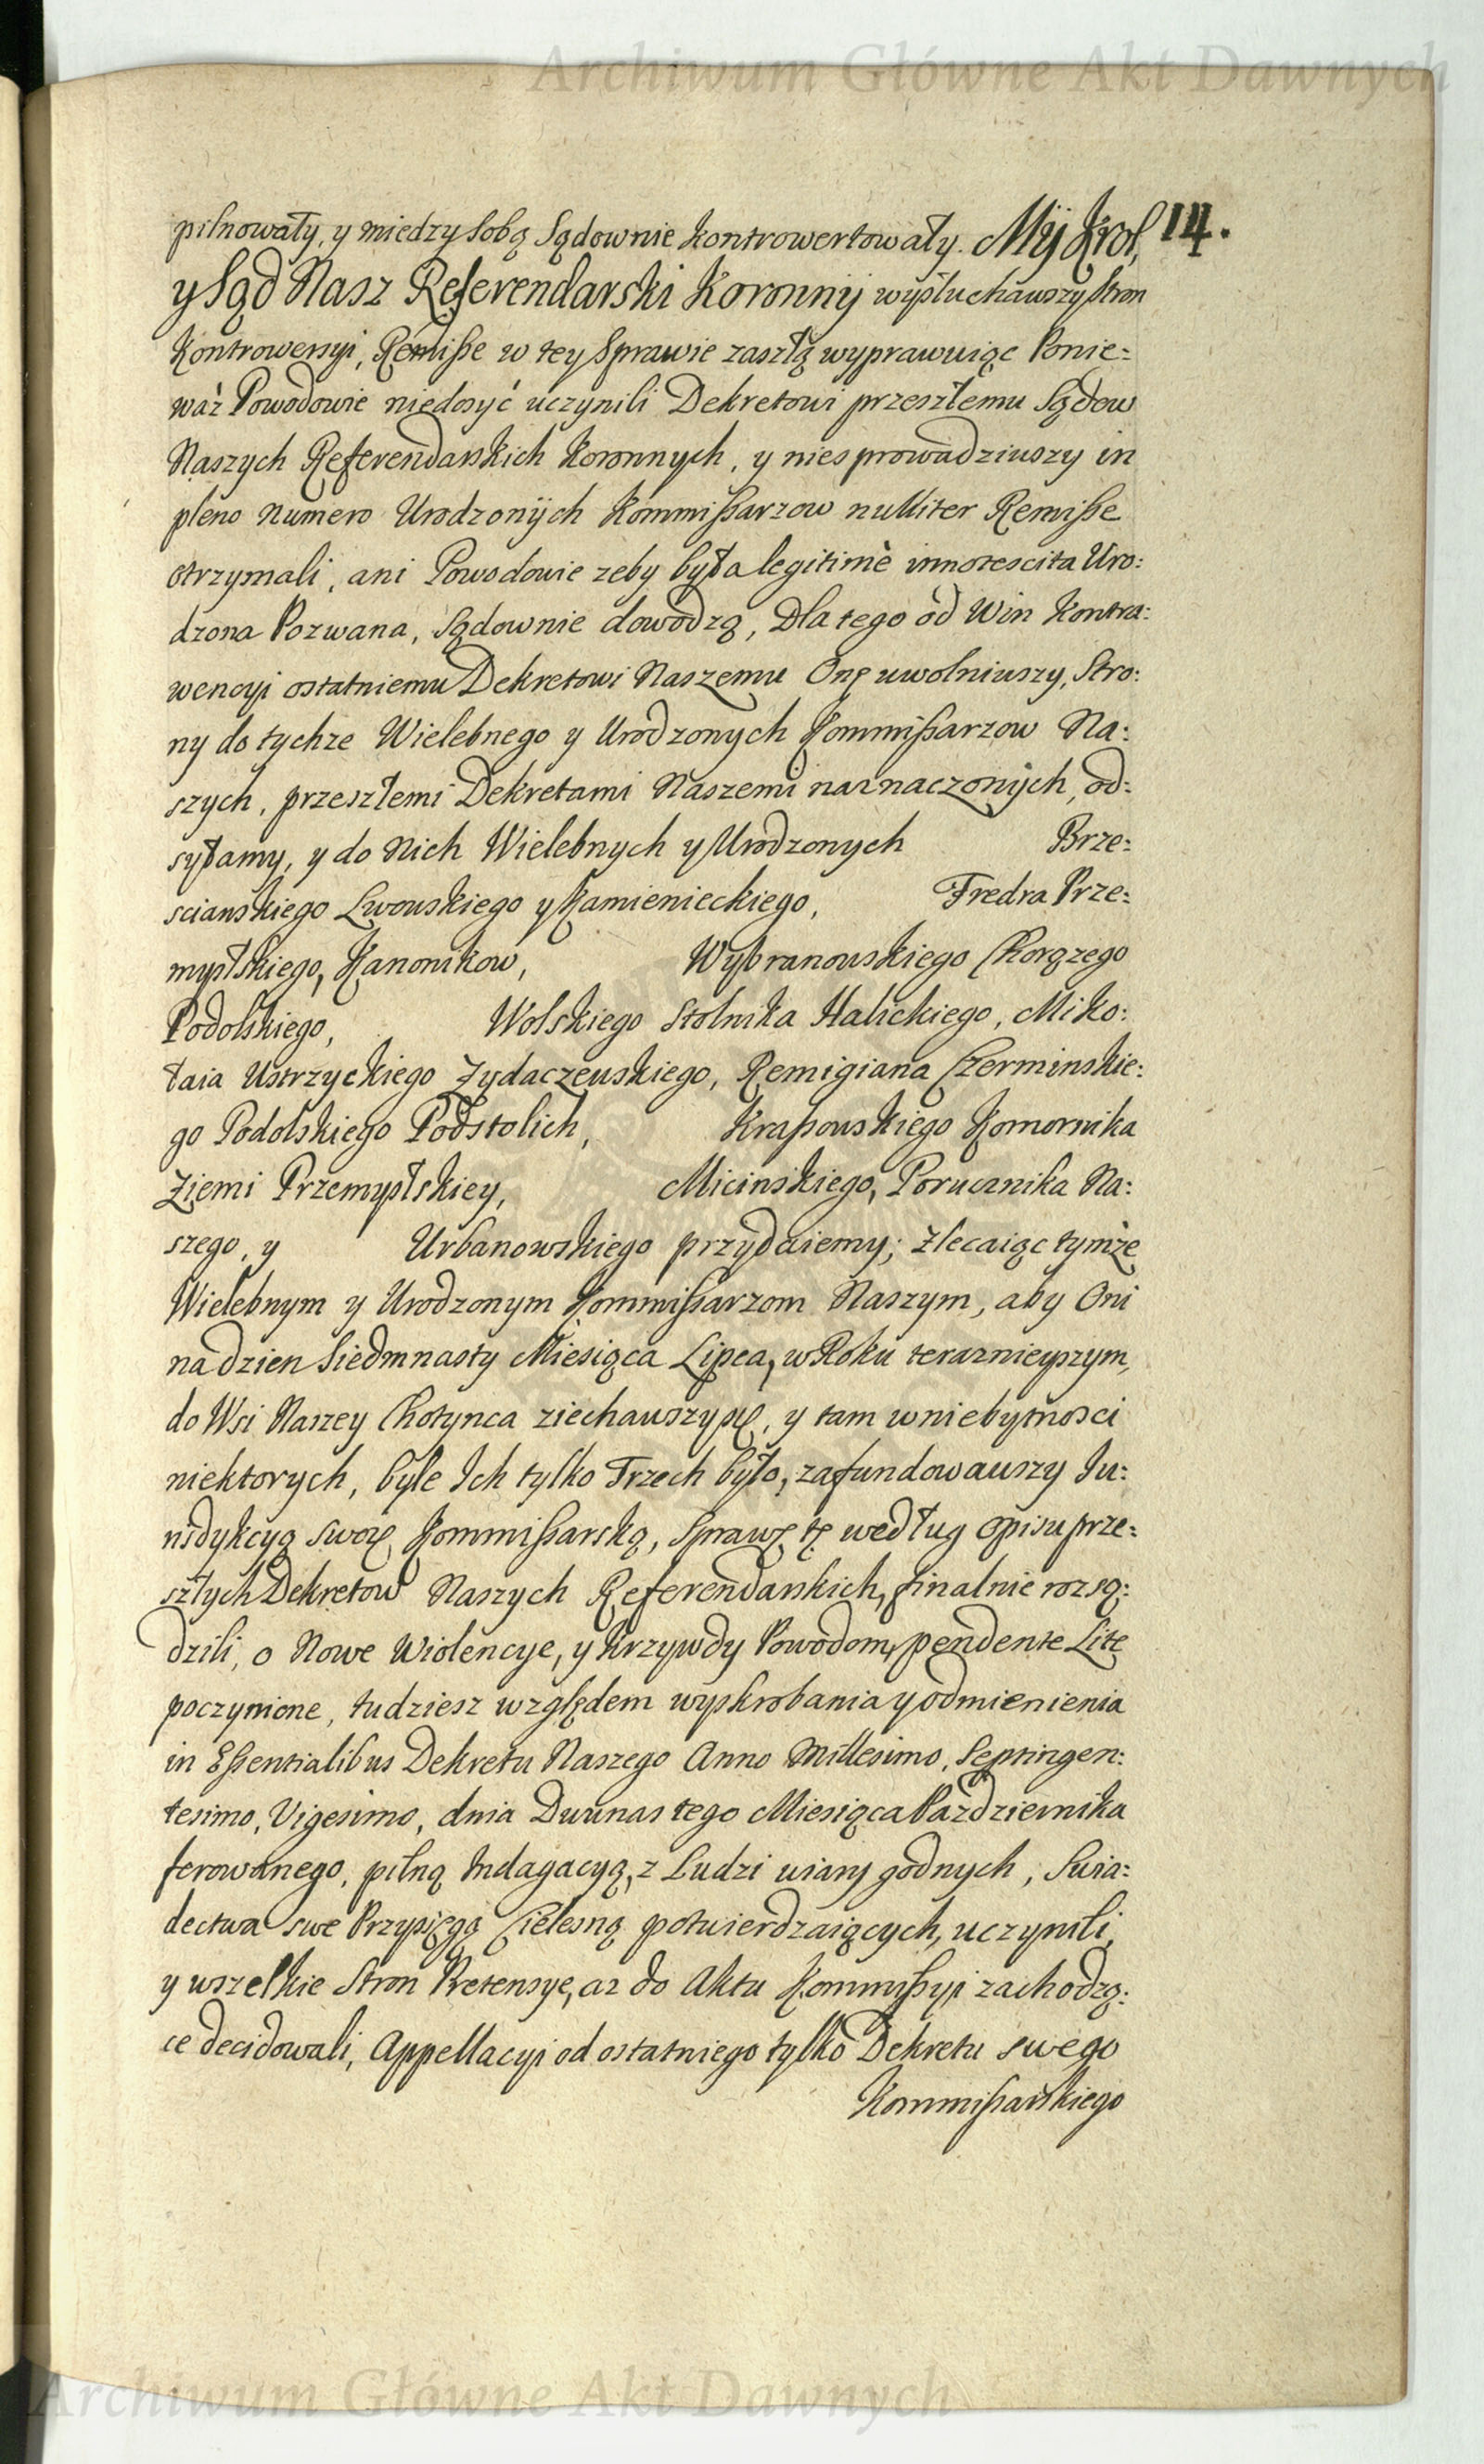 Archiwum Główne Akt Dawnych
14.
pilnowały, y miedzy sobą Sądownie kontrowertowały. My Krol,
y Sąd Nasz Referendarski Koronny wysłuchawszy Stron
Kontrowersyi, Remisse w tey Sprawie zaszłą wyprawuiąc Ponie:
waż Powodowie niedosyć uczynili Dekretowi przeszłemu Sądow
Naszych Referendarskich Koronnych, y niesprowadziwszy in
pleno numero Urodzonych Kommissarzow nulliter Remisse
otrzymali, ani Powodowie zeby była legitimè innotescita Uro:
dzona Pozwana, Sądownie dowodzą, Dla tego od Win Kontra:
wencyi ostatniemu Dekretowi Naszemu Onę uwolniwszy, Stro:
ny do tychze Wielebnego y Urodzonych Kommissarzow Na:
szych, przeszłemi Dekretami Naszemi naznaczonych, od:
syłamy, y do Nich Wielebnych y Urodzonych Brze:
scianskiego Lwowskiego y Kamienieckiego, Fredra Prze:
mysłskiego, Kanonikow, Wybranowskiego Chorązego
Podolskiego, Wolskiego Stolnika Halickiego, Miko:
łaia Ustrzyckiego Zydaczewskiego, Remigiana Czerminskie:
go Podolskiego Podstolich, Krassowskiego Komornika
Ziemi Przemysłskiey, Micinskiego, Porucznika Na:
szego, y Urbanowskiego przydaiemy; Zlecaiąc tymże
Wielebnym y Urodzonym Kommissarzom Naszym, aby Oni
na dzien Siedmnasty Miesiąca Lipca, w Roku terazniejszym,
do Wsi Naszey Chotynca ziechawszy się, y tam w niebytnosci
niektorych, byle Ich tylko Trzech było, zafundowawszy Ju:
risdykcyą swoię Kommissarską, Sprawę tę według opisu prze:
szłych Dekretow Naszych Referendarskich, finalnie rozsą:
dzili, o Nowe Wiolencye, y Krzywdy Powodom, pendente Lite
poczynione, tudziesz względem wyskrobania y odmienienia
in Essentialibus Dekretu Naszego Anno Millesimo, Septingen:
tesimo, Vigesimo, dnia Dwunastego Miesiąca Pazdziernika
ferowanego, pilną Indagacyą, z Ludzi wiary godnych, Swia:
dectwa swe Przysięgą Cielesną potwierdzaiących, uczynili,
y wszelkie Stron Pretensye, az do Aktu Kommissyi zachodzą:
ce decidowali, Appellacyi od ostatniego tylko Dekretu swego
Kommissarskiego
Archiwum Główne Akt Dawnych